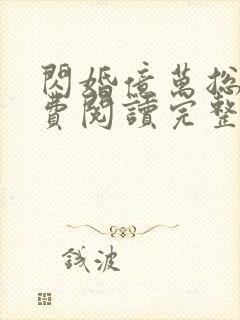 閃婚億萬總
費閱讀完整
錢波